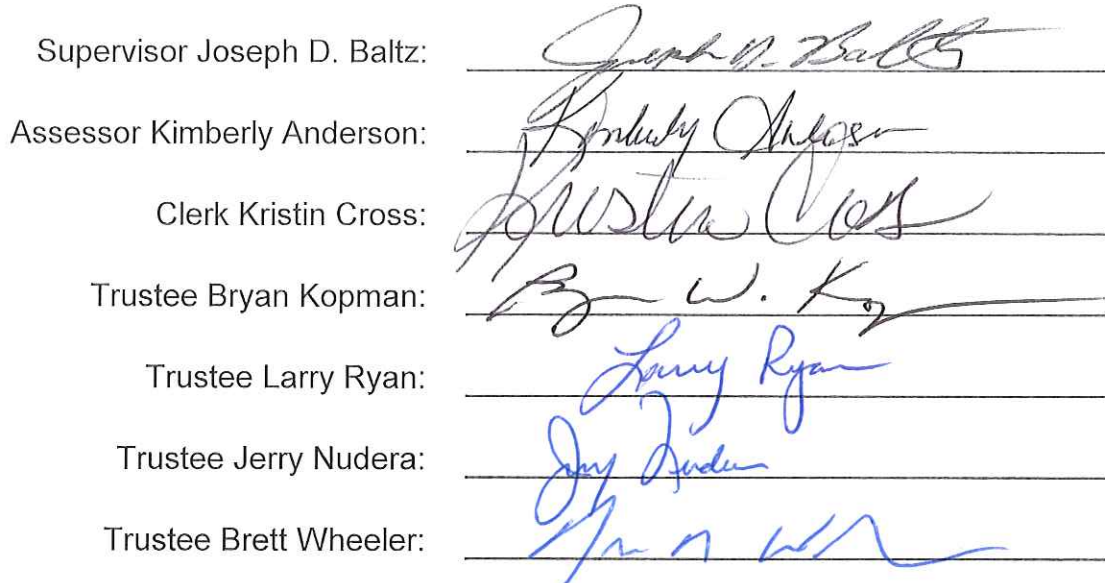 Supervisor Joseph D. Baltz: Joseph D. Baltz
Assessor Kimberly Anderson: Kimberly Anderson
Clerk Kristin Cross: Kristin Cross
Trustee Bryan Kopman: W.
Trustee Larry Ryan: Larry Ryan
Trustee Jerry Nudera: Jerry Nudera
Trustee Brett Wheeler: